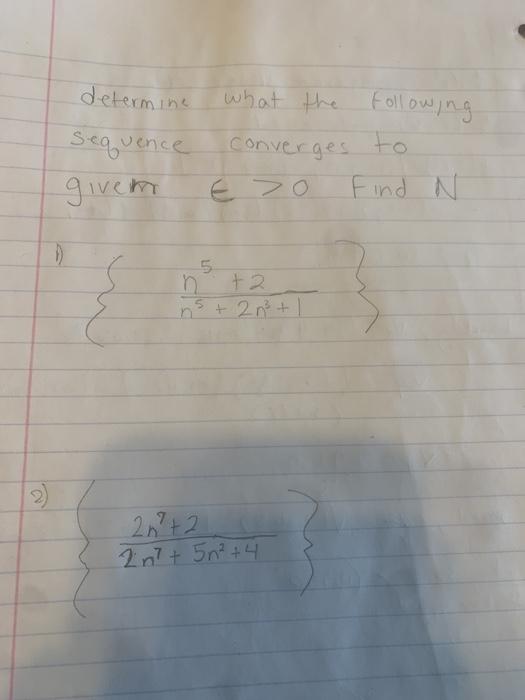 determine what the following
sequence converges to
given ε > 0 Find N
1) { n⁵ + 2
n⁵ + 2n³ + 1 }
2) { 2n⁷ + 2
2n⁷ + 5n² + 4 }